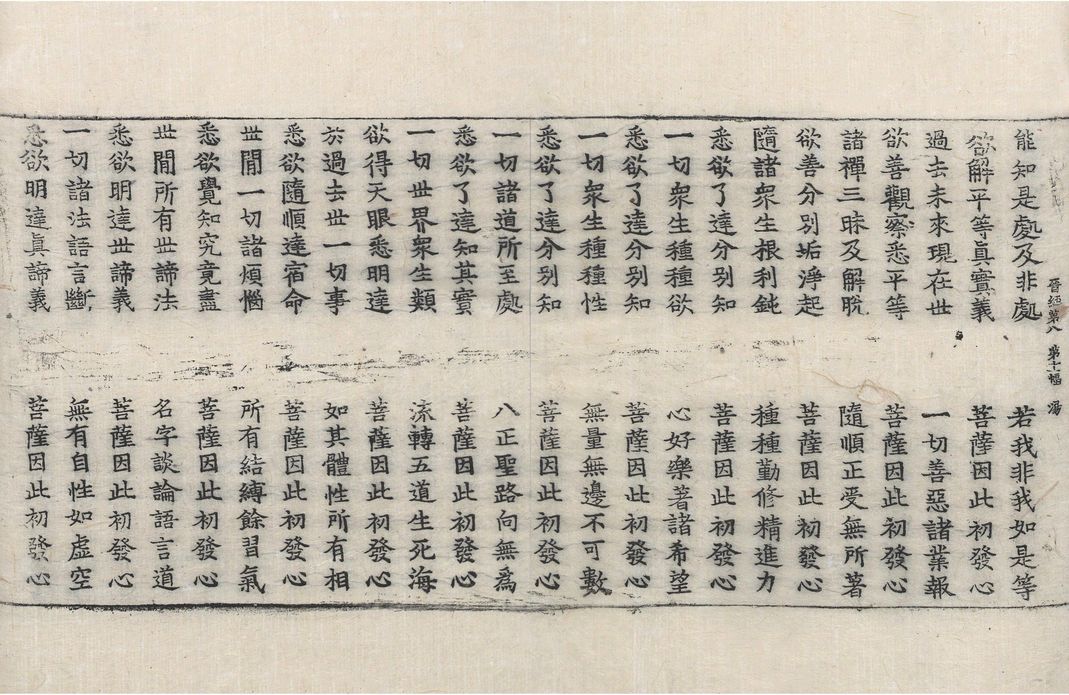 能知是處及非處 若我非我如是等
欲解平等真實義 菩薩因此初發心
過去未來現在世 一切善惡諸業報
欲善觀察悉平等 菩薩因此初發心
諸禪三昧及解脫 隨順正受無所著
欲善分別垢淨起 菩薩因此初發心
隨諸衆生根利鈍 種種勤修精進力
悉欲了達分別知 菩薩因此初發心
一切衆生種種欲 心好樂著諸希望
悉欲了達分別知 菩薩因此初發心
一切衆生種種性 無量無邊不可數
悉欲了達分別知 菩薩因此初發心
一切諸道所至處 八正聖路向無爲
悉欲了達知其實 菩薩因此初發心
一切世界衆生類 流轉五道生死海
欲得天眼悉明達 菩薩因此初發心
於過去世一切事 如其體性所有相
悉欲隨順達宿命 菩薩因此初發心
世間一切諸煩惱 所有結縛餘習氣
悉欲覺知究竟盡 菩薩因此初發心
世間所有世諦法 名字談論語言道
悉欲明達世諦義 菩薩因此初發心
一切諸法語言斷 無有自性如虛空
悉欲明達真諦義 菩薩因此初發心
晉經第八 第十幅 湯